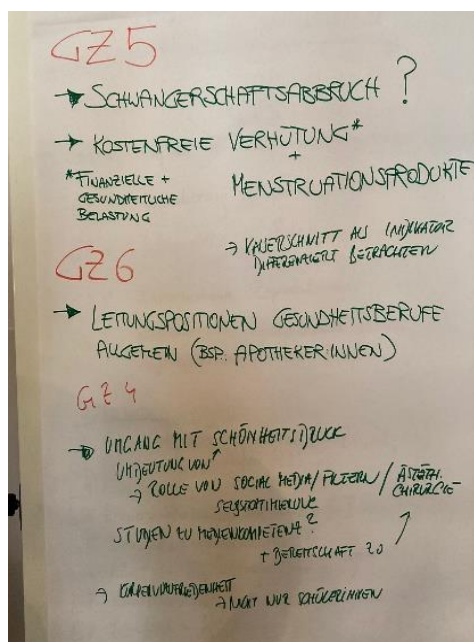 GZ5
→ SCHWANGERSCHAFTSABBRUCH ?
→ KOSTENFREIE VERHÜTUNG*
+
*FINANZIELLE +
GESUNDHEITLICHE
BELASTUNG
MENSTRUATIONSPRODUKTE
→ KAISERSCHNITT ALS INDIKATOR
DIFFERENZIERT BETRACHTEN
GZ6
→ LEITUNGSPOSITIONEN GESUNDHEITSBERUFE
ALLGEMEIN (BSP. APOTHEKER:INNEN)
GZ4
→ UMGANG MIT SCHÖNHEITSDRUCK
UMDEUTUNG VON
→ ROLLE VON SOCIAL MEDIA / FILTERN / ÄSTHETH. CHIRURGIE
SELBSTOPTIMIERUNG
STUDIEN ZU MEDIENKOMPETENZ?
+ BEREITSCHAFT ZU
→ KÖRPERUNZUFRIEDENHEIT
→ NICHT NUR SCHÜLERINNEN